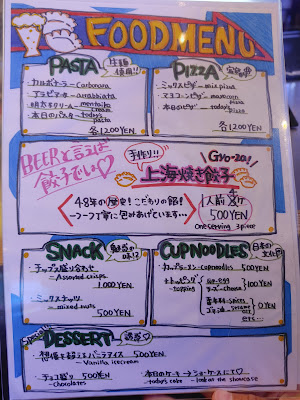 FOODMENU
PASTA 生麺使用!!
カルボナーラ - carbonara
アラビアータ - arrabbiata
明太クリーム - mentaiko cream
本日のパスタ - today's pasta
各1200YEN
PIZZA
ミックスピザ - mix pizza
pizza
本日のピザ - today's pizza
各1200YEN
BEERと言えば
餃子でしょ♡
手作り!!
Gyo-za!
上海焼き餃子
48年の歴史!こだわりの館!
一つ一つ丁寧に包みあげています…
1人前
500YEN
one serving
SNACK 魅惑の味!?
チップス盛り合わせ
- Assorted crisps
1000YEN
ミックスナッツ
- mixed nuts
500YEN
CUPNOODLES 日本の文化!!
カップヌードル - cupnoodles 500YEN
トッピング - topping
チーズ - cheese
100YEN
spices
0YEN
etc...
Special DESSERT 誘惑♡
想像を超えるバニライアイス 500YEN
- Vanilla icecream
チョコ盛り 500YEN
- chocolates
本日のケーキ→ショーケースにて♡
today's cake - look at the showcase